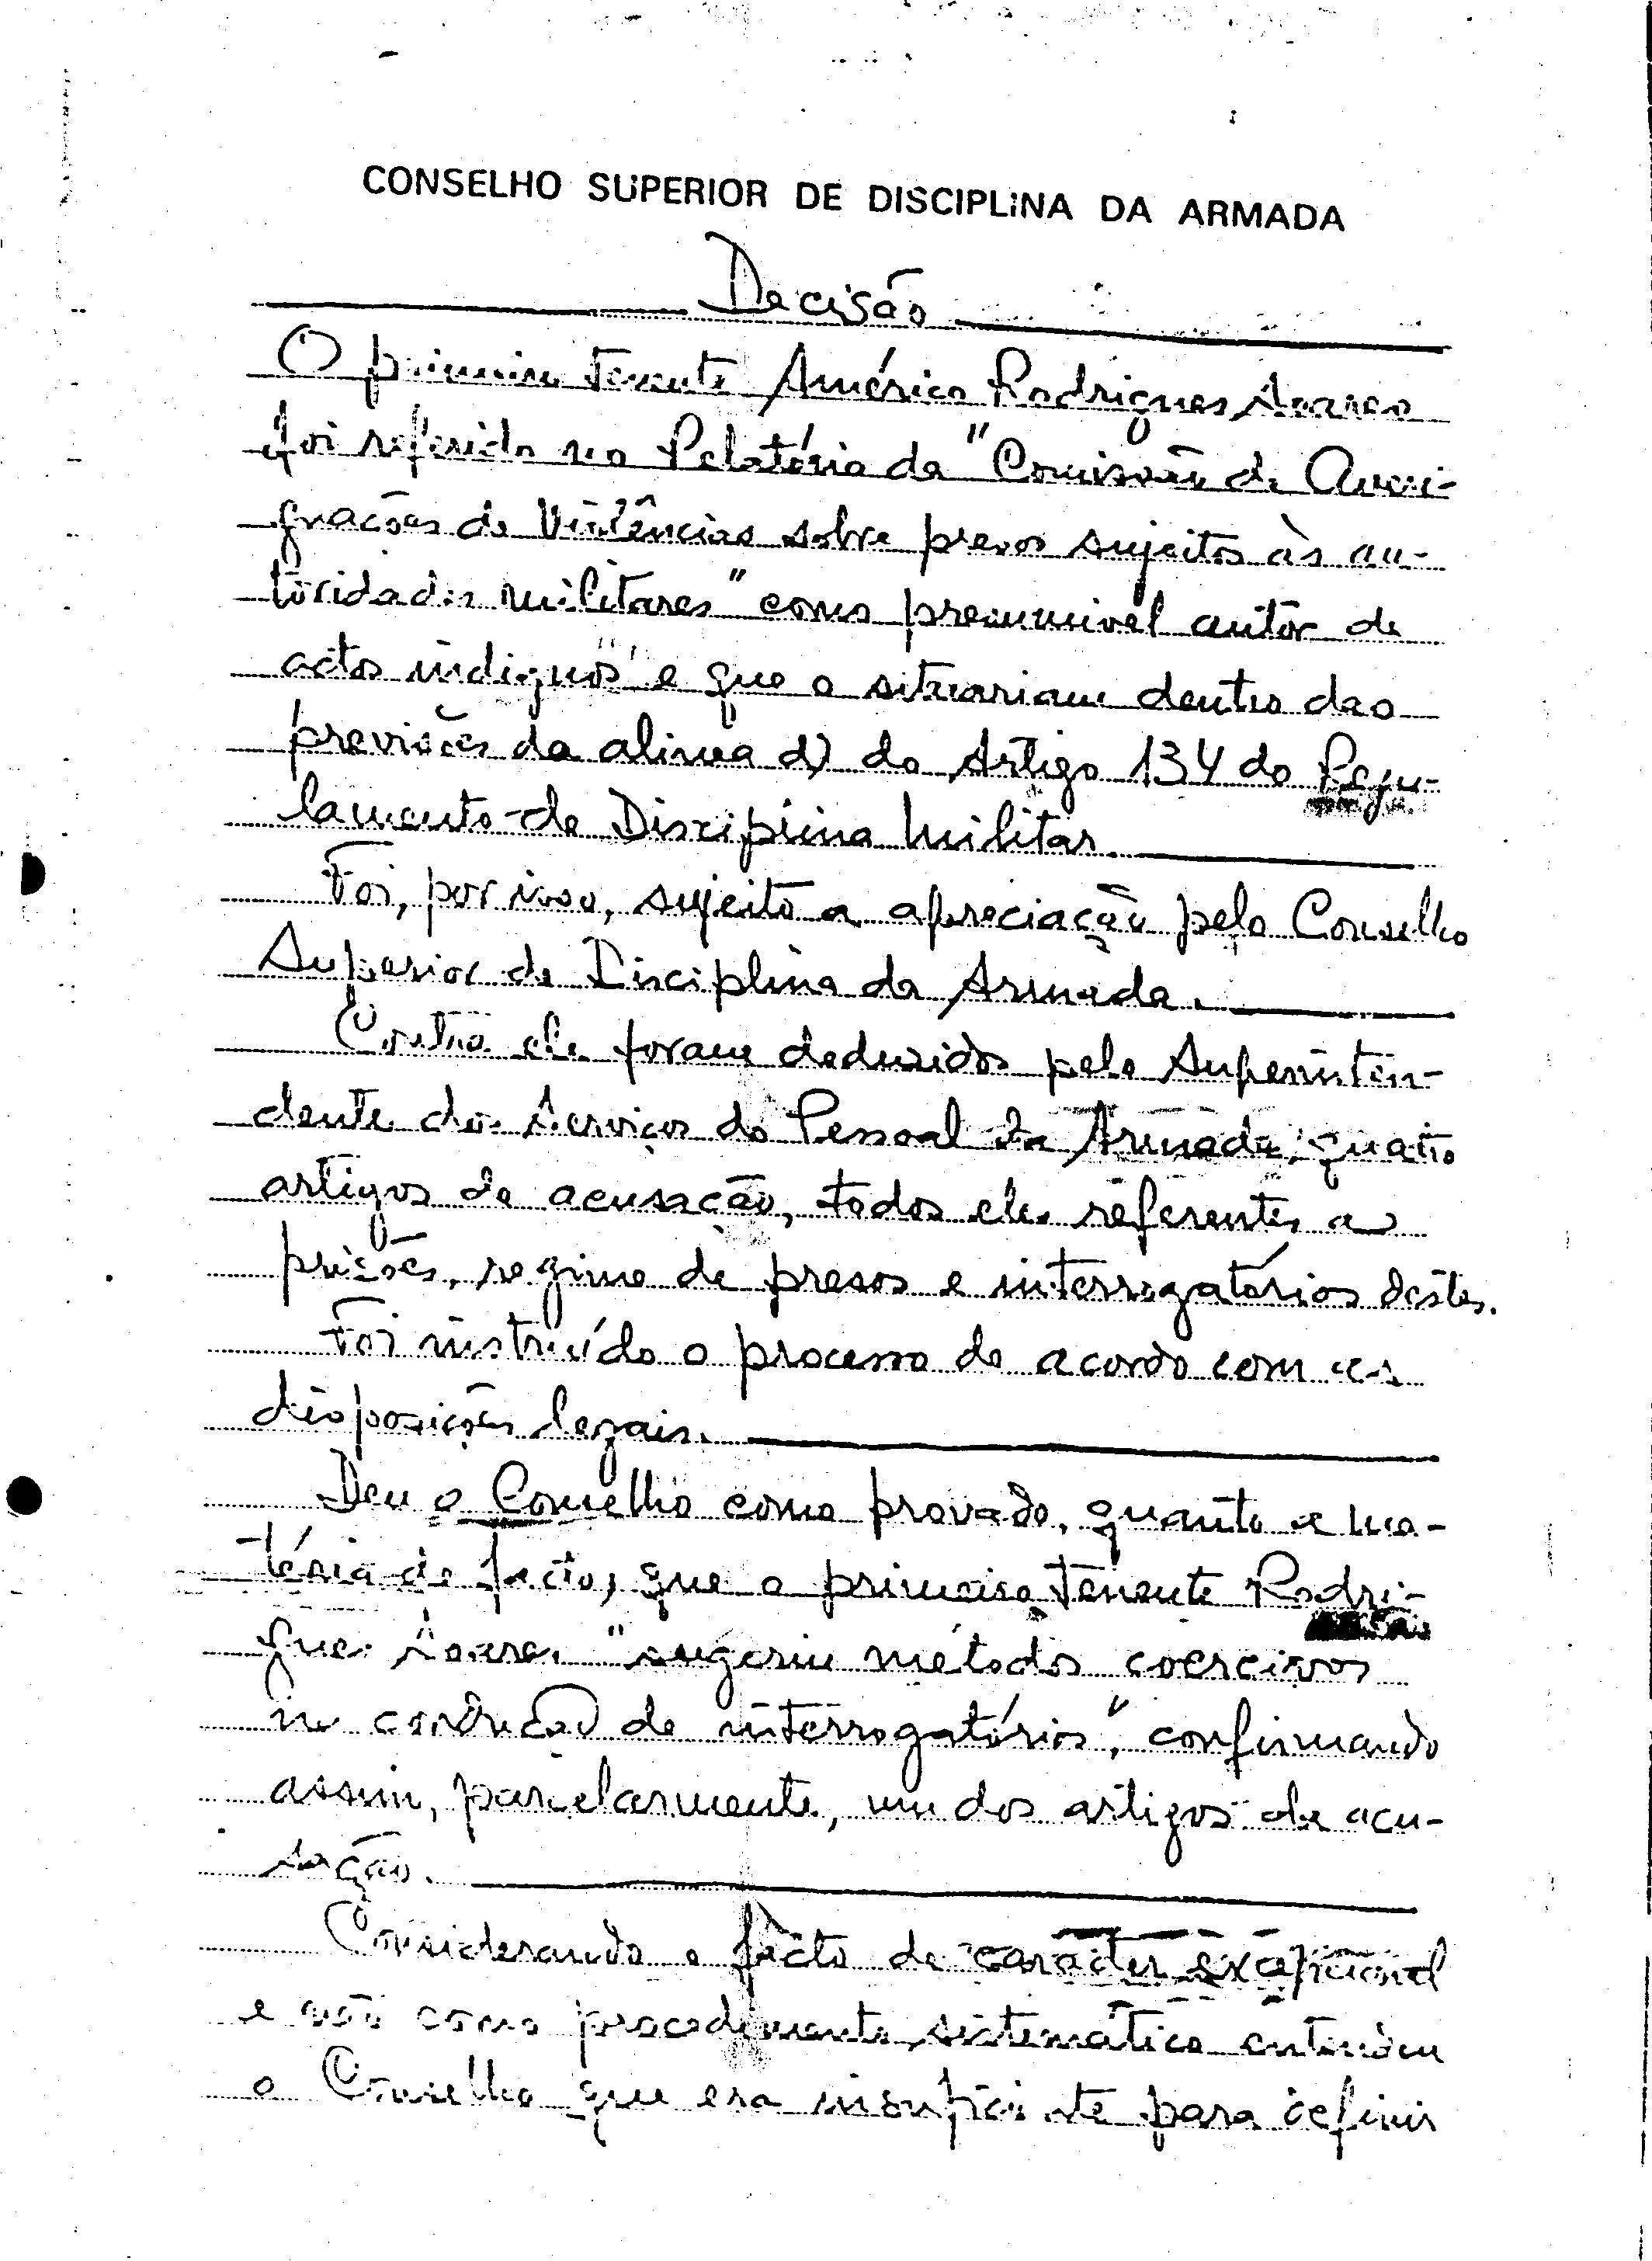 CONSELHO SUPERIOR DE DISCIPLINA DA ARMADA
Decisão
O primeiro tenente Américo Rodrigues Soares
foi referido no Relatório da "Comissão de Averi-
guações de Violências sobre presos sujeitos às au-
toridades militares" como presumível autor de
actos "indignos" e que o situariam dentro das
previsões da alínea d) do Artigo 134 do Regu-
lamento de Disciplina Militar.
Foi, por isso, sujeito a apreciação pelo Conselho
Superior de Disciplina da Armada.
Contra ele foram deduzidos pelo Superinten-
dente dos Serviços do Pessoal da Armada, quatro
artigos de acusação, todos eles referentes a
prisões, regime de presos e interrogatórios destes.
Foi instruído o processo de acordo com as
disposições legais.
Deu o Conselho como provado, quanto a ma-
téria de facto, que o primeiro tenente Rodri-
gues Soares "sugeriu métodos coercivos
na condução de interrogatórios", confirmando
assim, parcelarmente, um dos artigos de acu-
sação.
Considerando o facto de carácter excepcional
e não como procedimento sistemático entendeu
o Conselho que era insuficiente para definir